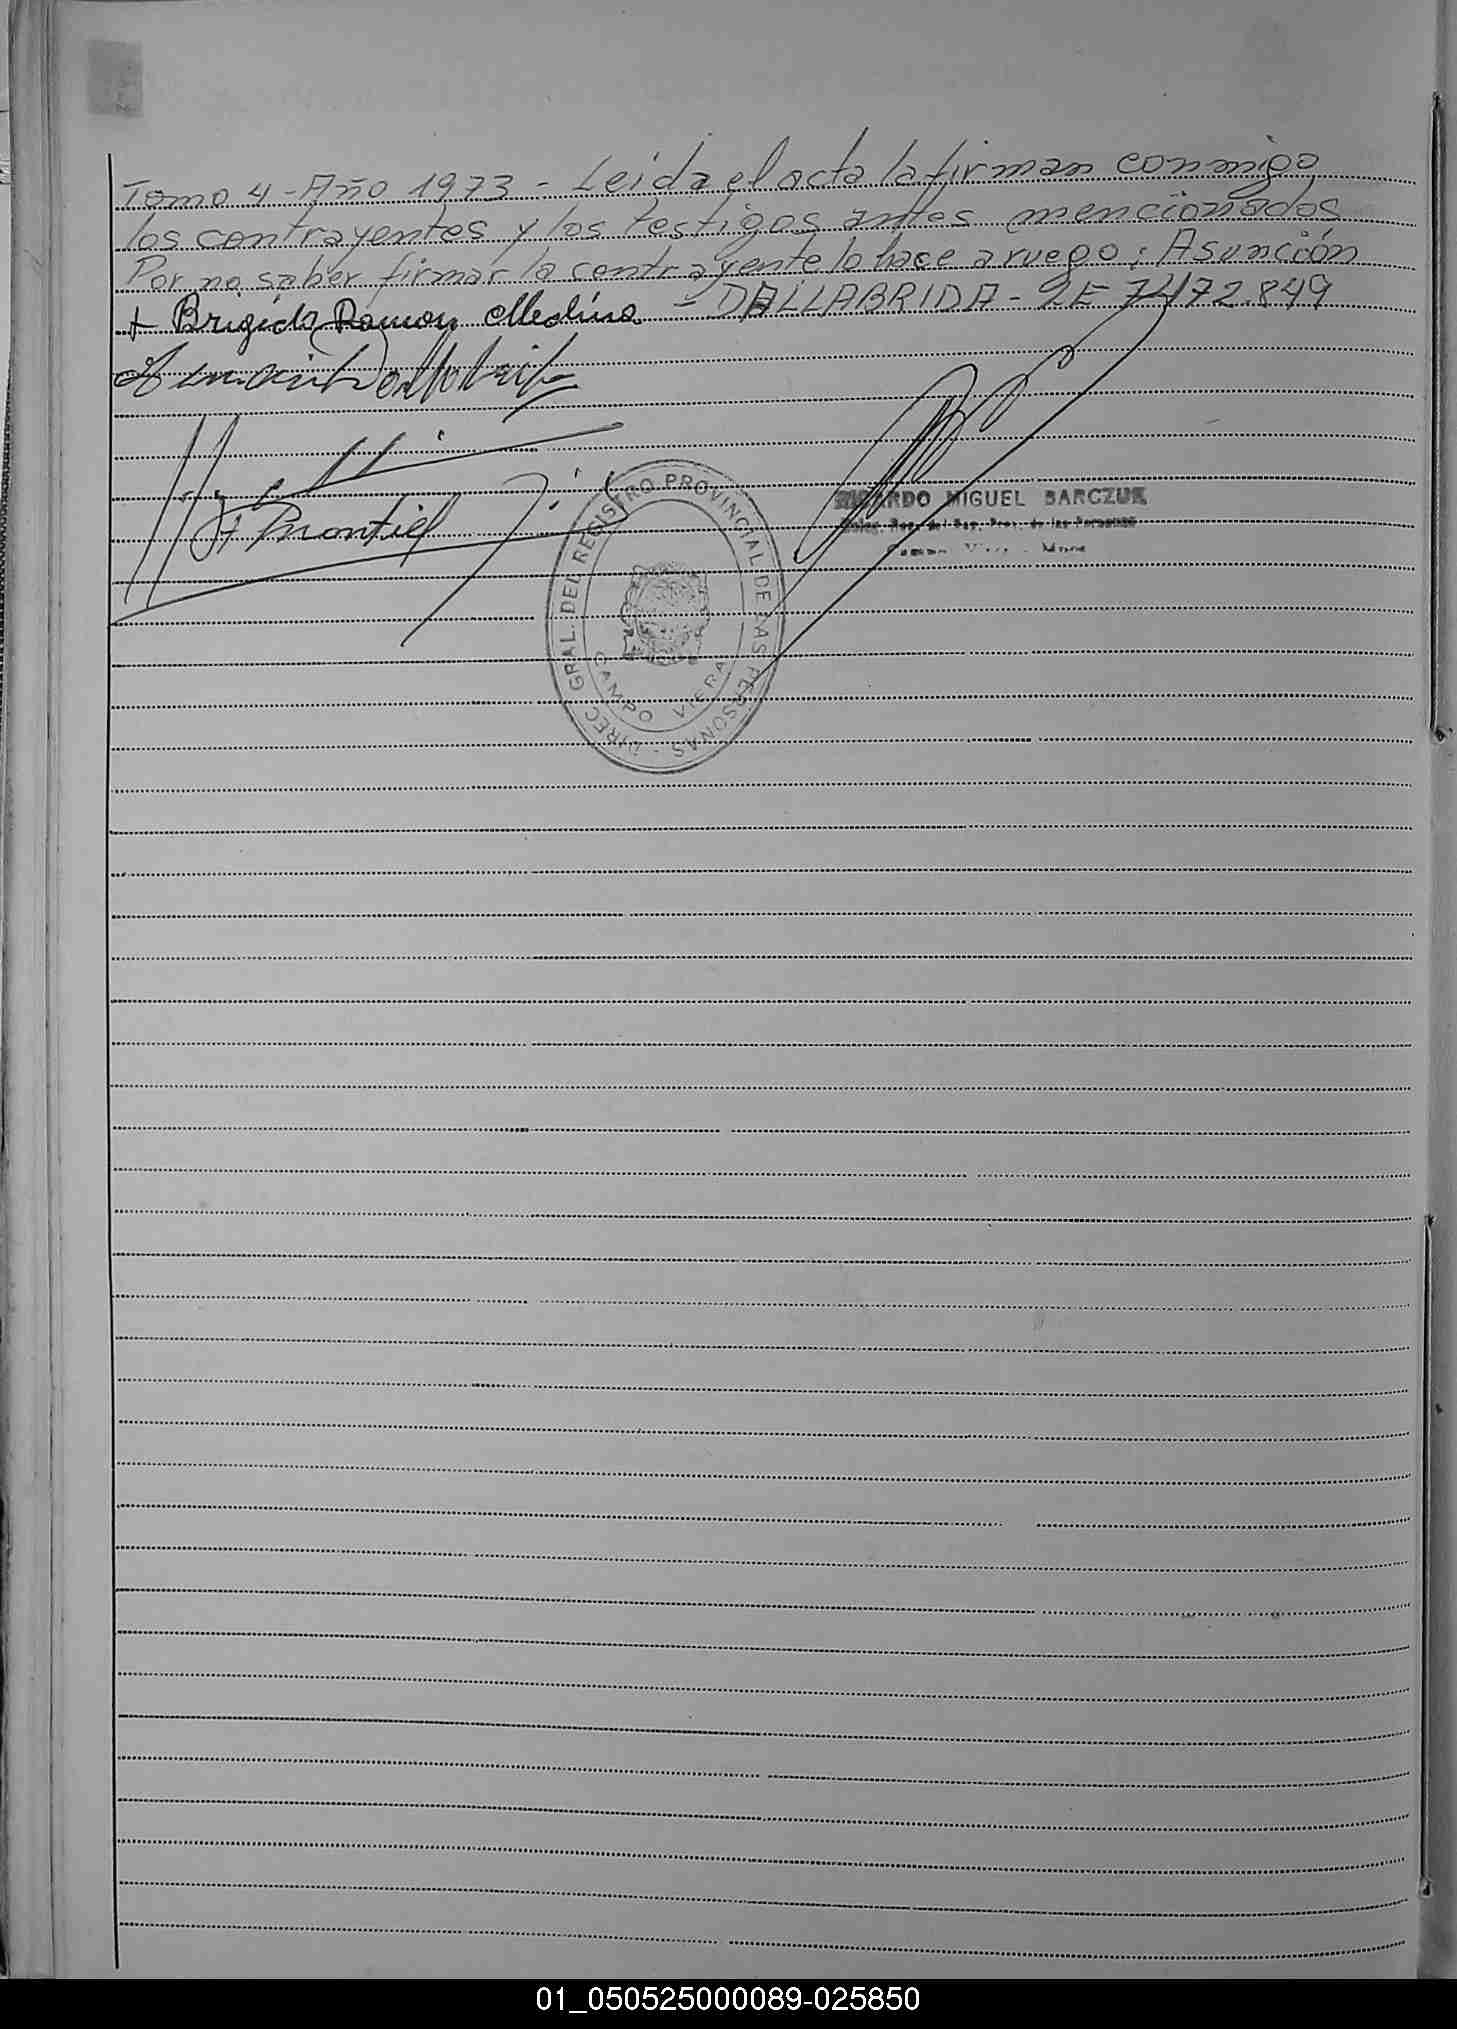 Tomo 4 - Año 1973 - Leída el acta la firman conmigo
los contrayentes y los testigos antes mencionados
Por no saber firmar la contrayente lo hace a ruego: Asunción
+ Brigido Ramon Medina - DALLABRIDA - LE 7472.849
Montiel
RICARDO MIGUEL BARCZUK
Deleg. Reg. del Reg. Prov. de las Personas
Campo Viera - Mnes
DIREC. GRAL. DEL REGISTRO PROVINCIAL DE LAS PERSONAS -
CAMPO VIERA
01_050525000089-025850